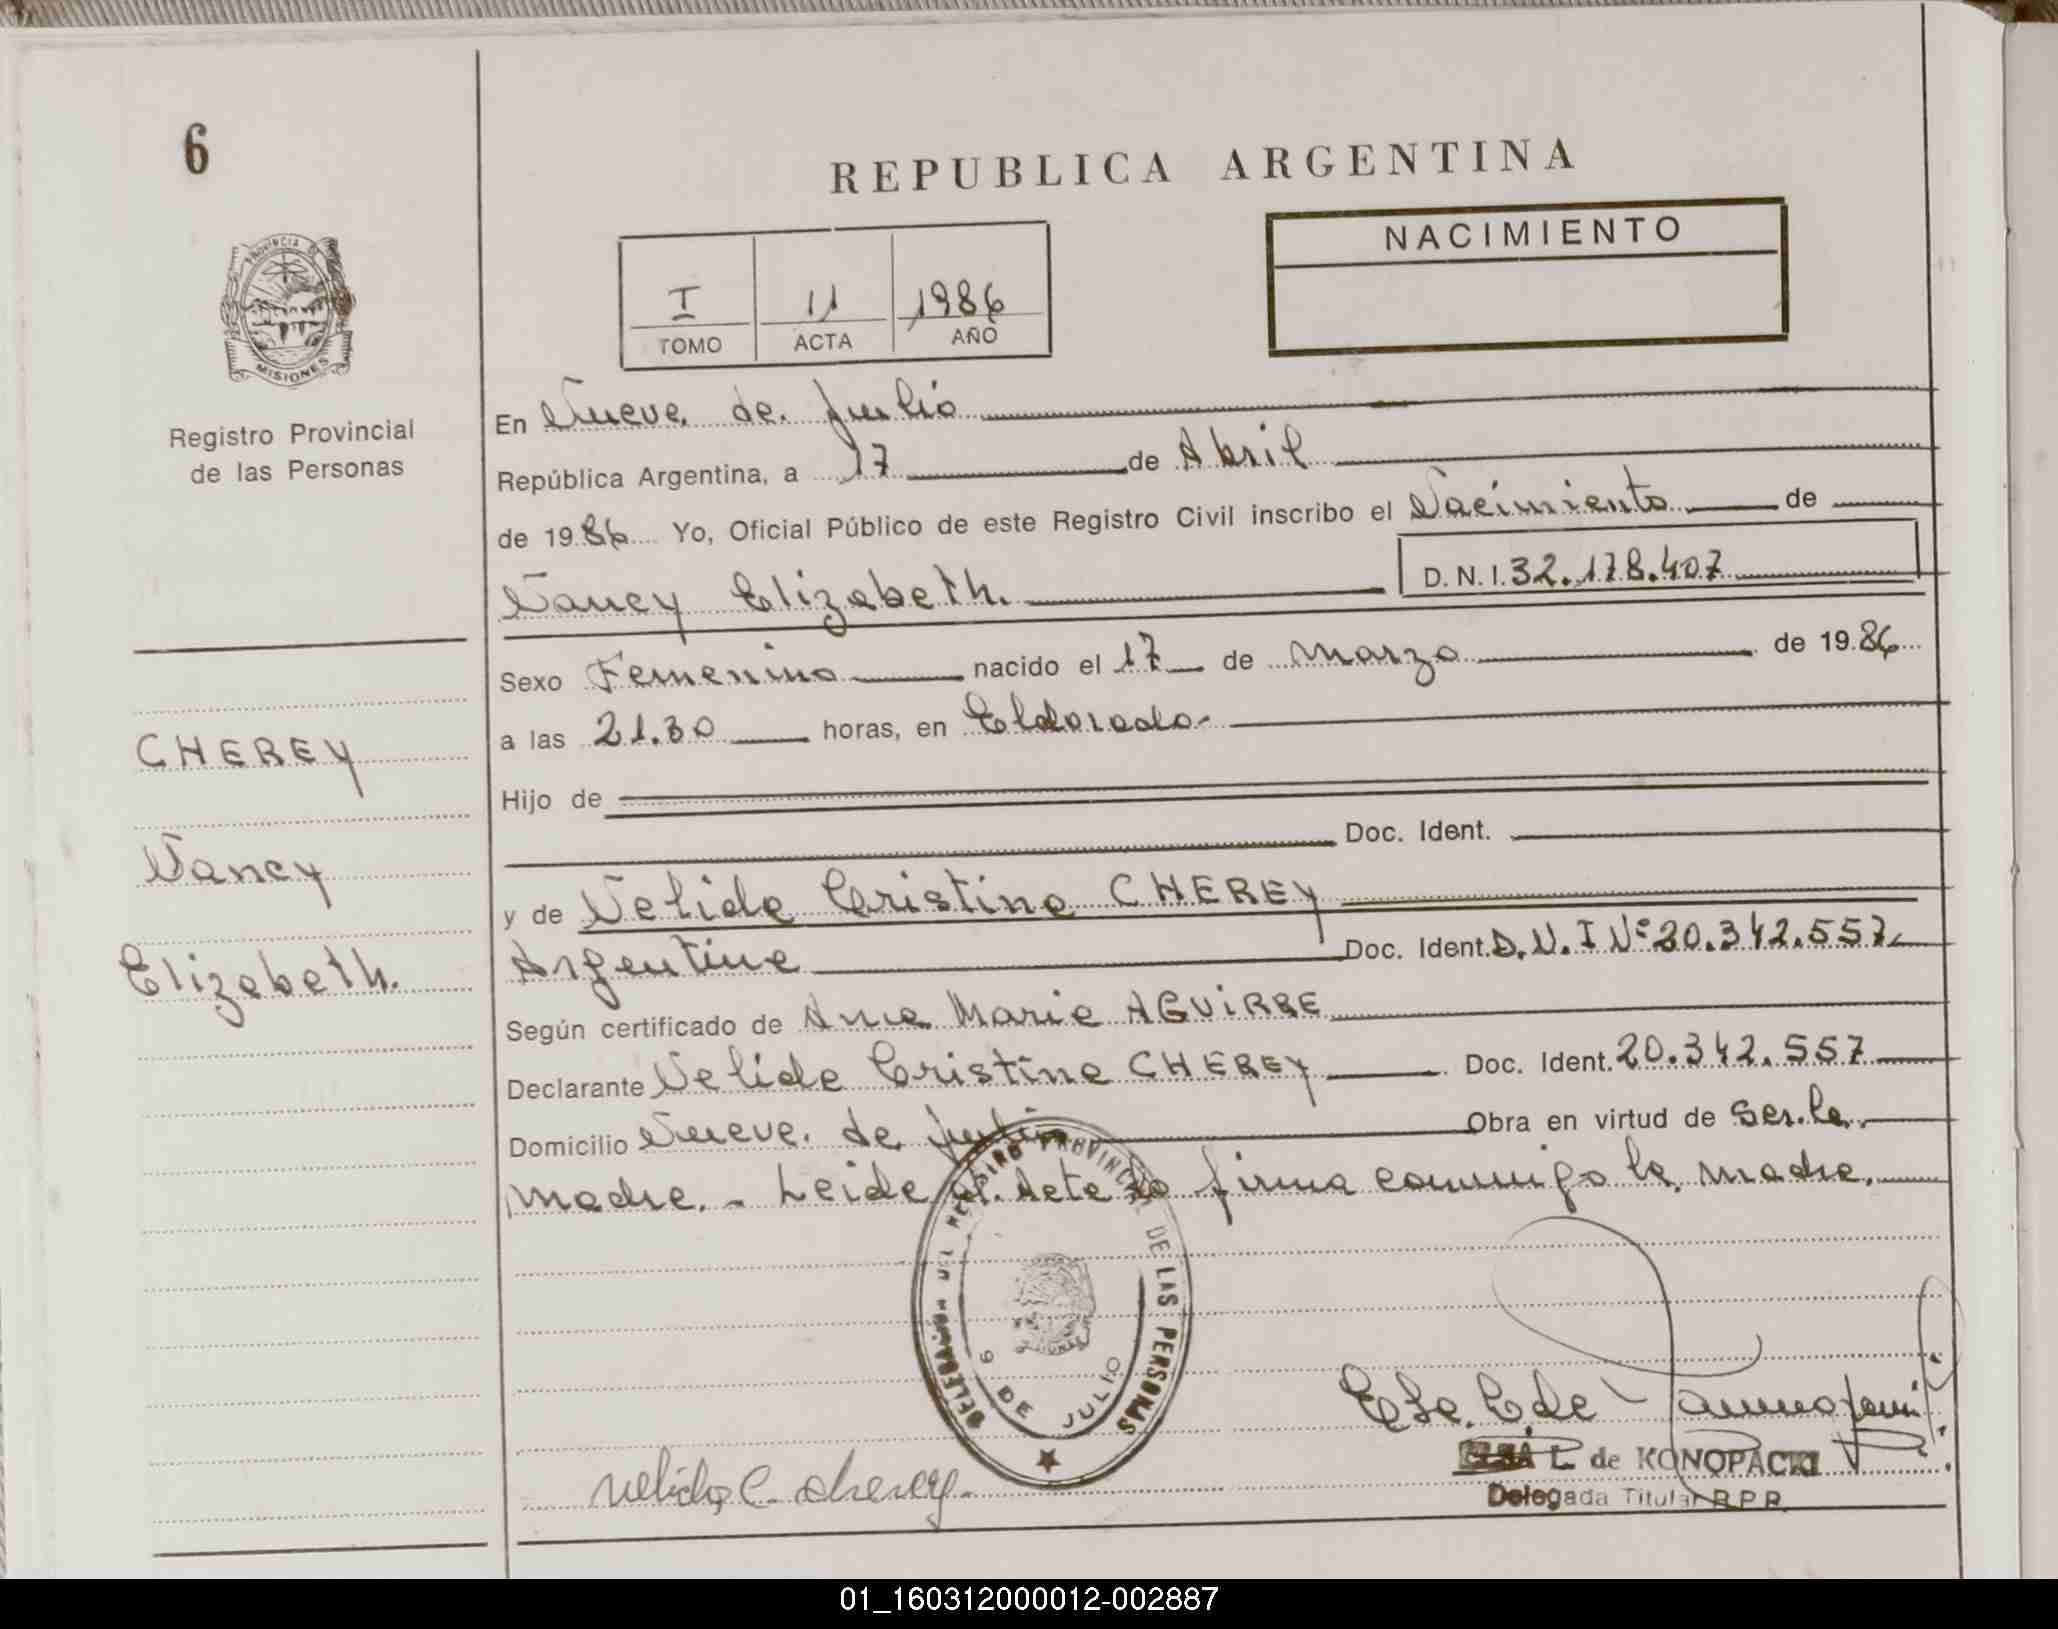 6
REPUBLICA ARGENTINA
NACIMIENTO
I 11 1986
TOMO ACTA AÑO
PROVINCIA DE
MISIONES
Registro Provincial
de las Personas
En Nueve de Julio
República Argentina, a 17 de Abril
de 1986 Yo, Oficial Público de este Registro Civil inscribo el Nacimiento de
Nancy Elizabeth. D.N.I. 32.178.407
Sexo Femenino nacido el 17 de Marzo de 1986
a las 21.30 horas, en Eldorado
Hijo de
Doc. Ident.
y de Nelida Cristina CHEREY
Argentina Doc. Ident. D.N.I Nº 20.342.557
Según certificado de Ana Maria AGUIRRE
Declarante Nelida Cristina CHEREY Doc. Ident. 20.342.557
Domicilio Nueve de Julio Obra en virtud de Ser la
madre. - Leida el Acta la firma conmigo la madre.
CHEREY
Nancy
Elizabeth.
DELEGACION DEL REGISTRO PROVINCIAL DE LAS PERSONAS
9 DE JULIO
Nelida C. Cherey.
ELSA L. de KONOPACKI
Delegada Titular R.P.P.
01_160312000012-002887